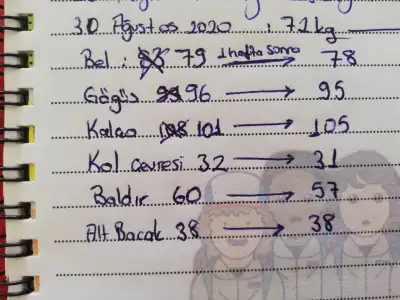 30 Ağustos 2020 : 71 kg
Bel : 83 79 1 hafta sonra 78
Göğüs 99 96 → 95
Kalça 108 101 → 105
Kol çevresi 32 → 31
Baldır 60 → 57
Alt Bacak 38 → 38